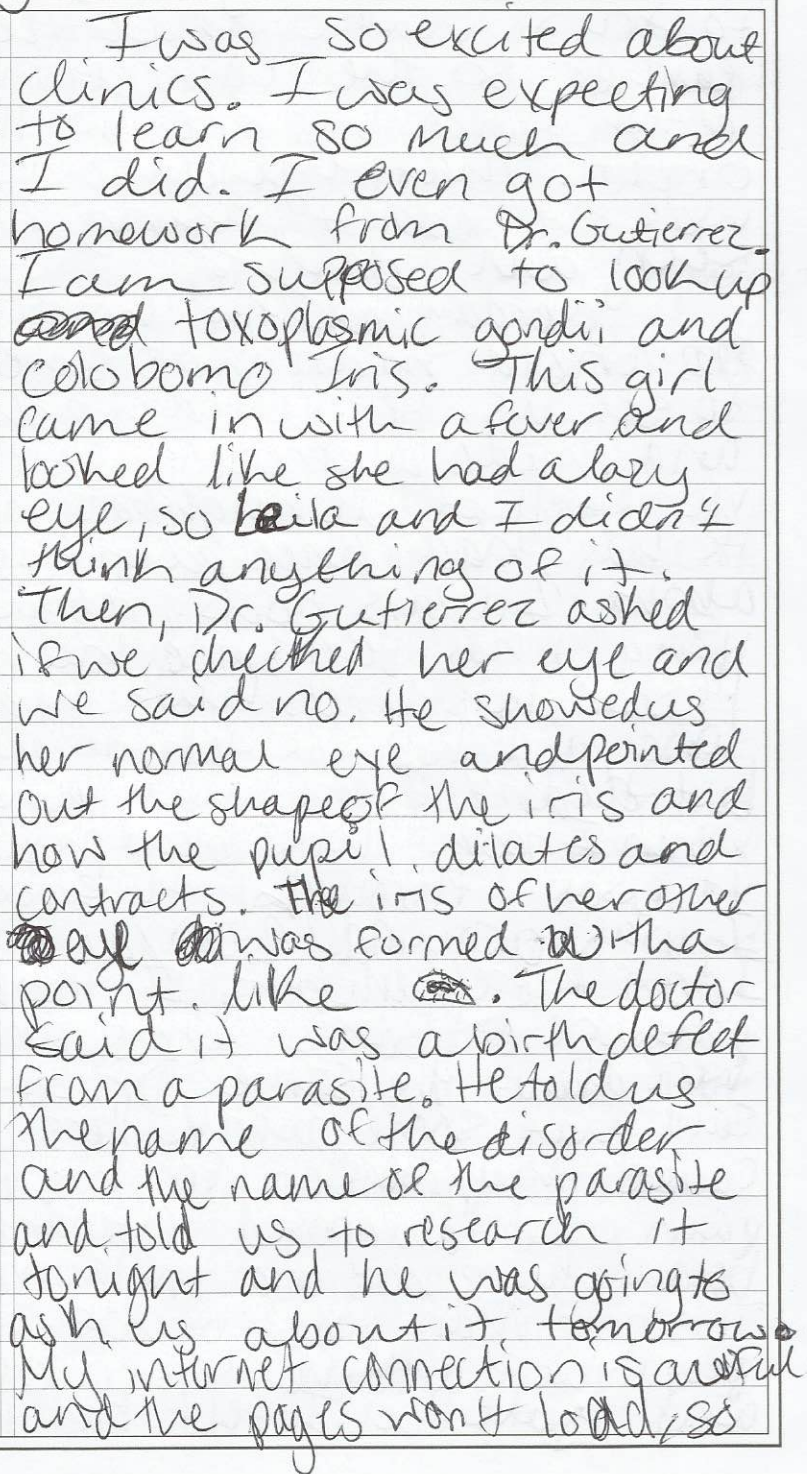 I was so excited about
clinics. I was expecting
to learn so much and
I did. I even got
homework from Dr. Gutierrez.
I am supposed to look up
toxoplasmic gondii and
colobomo Iris. This girl
came in with a fever and
looked like she had a lazy
eye, so Leila and I didn't
think anything of it.
Then, Dr. Gutierrez asked
if we checked her eye and
we said no. He showed us
her normal eye and pointed
out the shape of the iris and
how the pupil dilates and
contracts. The iris of her other
eye was formed with a
point. like . The doctor
said it was a birth defect
from a parasite. He told us
the name of the disorder
and the name of the parasite
and told us to research it
tonight and he was going to
ask us about it tomorrow.
My internet connection is awful
and the pages won't load, so